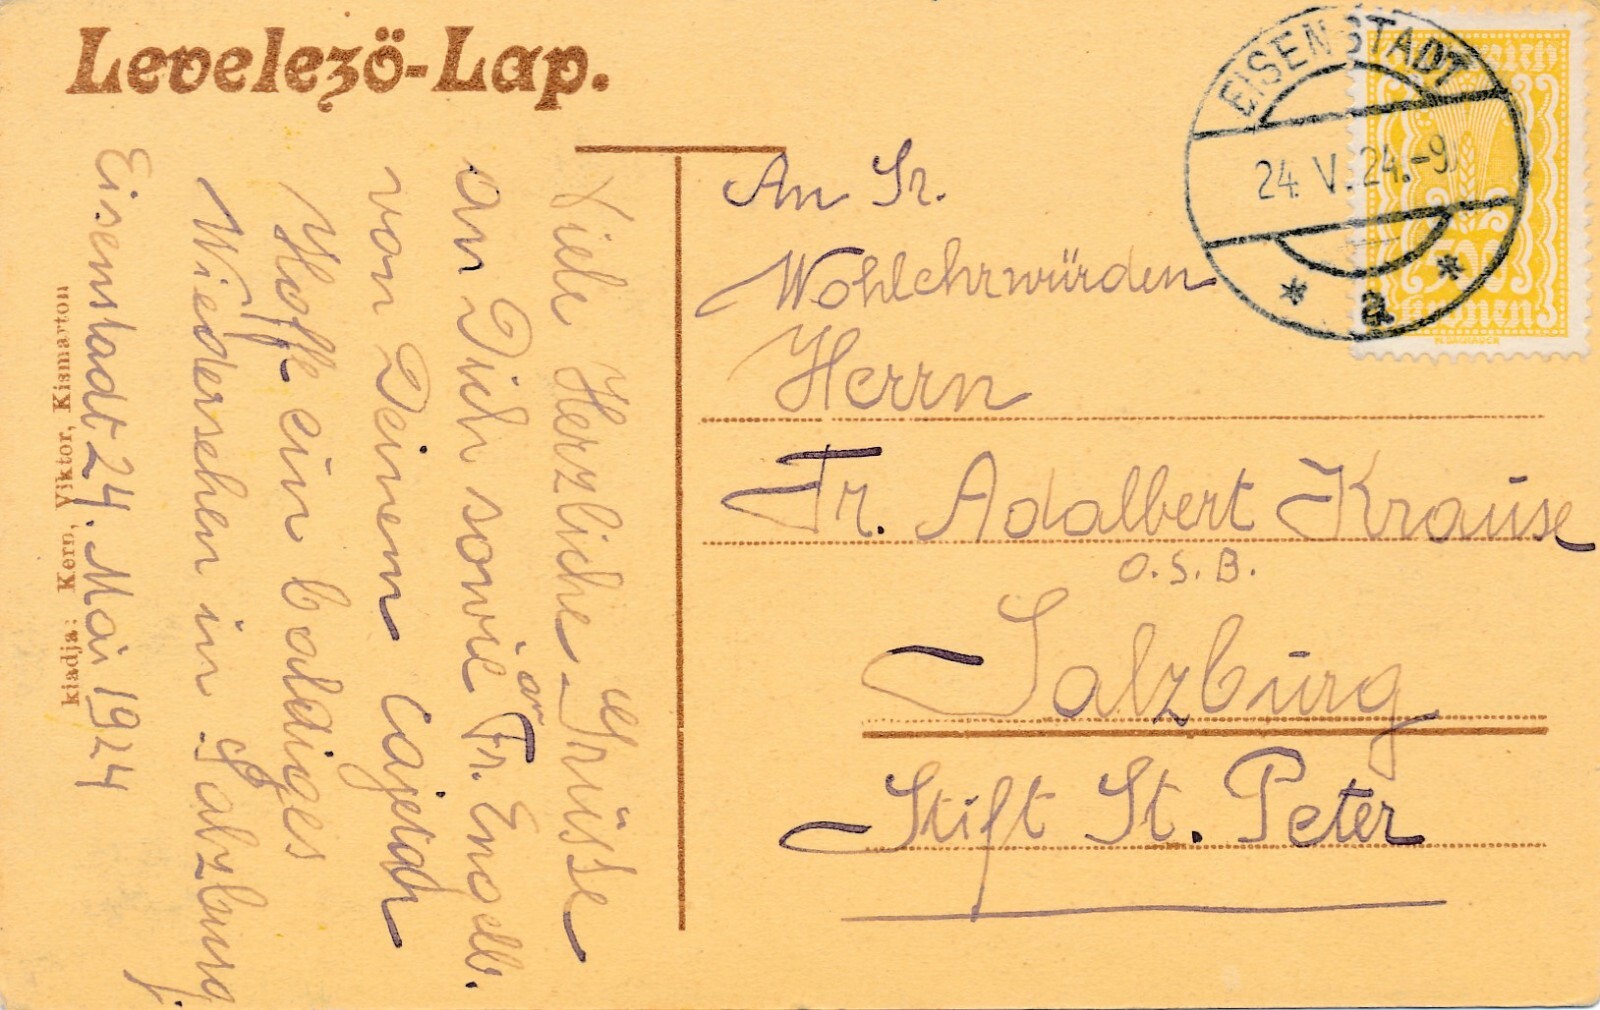 Levelező-Lap.
EISENSTADT
24. V. 24.-9
* a *
500
Kronen
An Sr.
Wohlehrwürden
Herrn
Fr. Adalbert Krause
O.S.B.
Salzburg
Stift St. Peter
Viele Herzliche Grüsse
an Dich sowie Fr. Engelb.
von Deinem Cajetan
Hoffe ein baldiges
Wiedersehen in Salzburg
Eisenstadt 24. Mai 1924
kiadja: Kern, Viktor, Kismarton